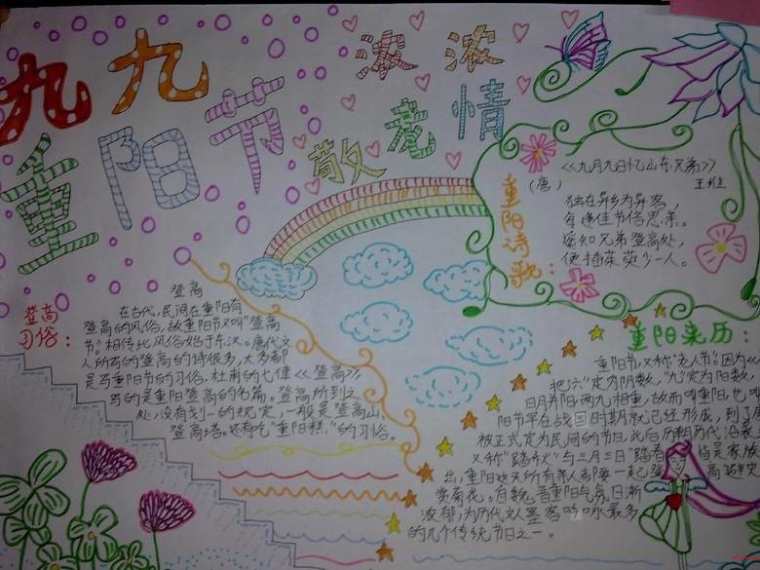 九九
重阳节
浓浓
敬老情
重阳诗歌：
《九月九日忆山东兄弟》
(唐) 王维
独在异乡为异客，
每逢佳节倍思亲。
遥知兄弟登高处，
便插茱萸少一人。
登高
习俗：
登高
在古代，民间在重阳有
登高的风俗，故重阳节又叫"登高
节"。相传此风俗始于东汉。唐代文
人所写的登高的诗很多，大多都
是写重阳节的习俗，杜甫的七律《登高》
写的是重阳登高的名篇。登高所到之
处，没有划一的规定，一般是登高山，
登高塔。还有吃"重阳糕"的习俗。
重阳来历：
重阳节，又称"老人节"因为《
把"六"定为阴数，"九"定为阳数，
日月并阳两九相重，故而叫重阳，也叫
阳节早在战国时期就已经形成，到了唐
被正式定为民间的节日，此后历朝历代沿袭
又称"踏秋"与三月三日"踏春" 皆是家族
出，重阳 所有亲人都要一起 高
赏菊花。自魏晋重阳气氛日渐
浓郁，为历代文人墨客吟咏最多
的几个传统节日之一。